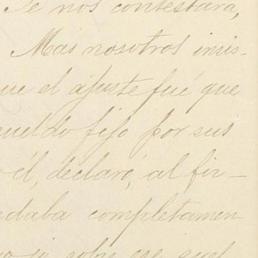 se nos contestara,
Mas nosotros insis-
ue el ajuste fué que
sueldo fijo por sus
él, declaró, al fir-
edaba completamen-
sobre ese